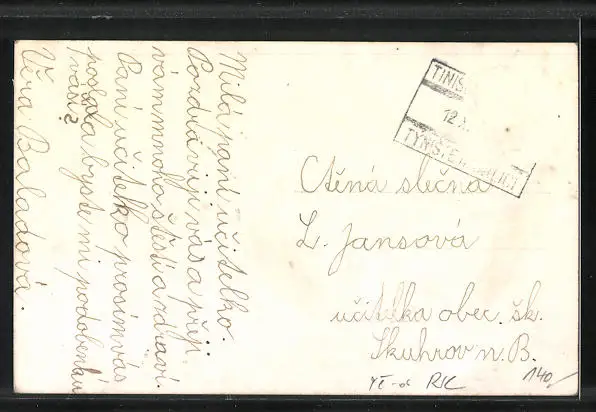 Milá paní učitelko.
Pozdravuji vás a přeji
vám mnoho štěstí a zdraví
Paní učitelko prosím vás
poslala byste mi podobenku
vaší?
Věra Baladová.
TÝNIŠTĚ
Ctěná slečna
L. Jansová
učitelka obec. šk.
Skuhrov n. B.
140,-